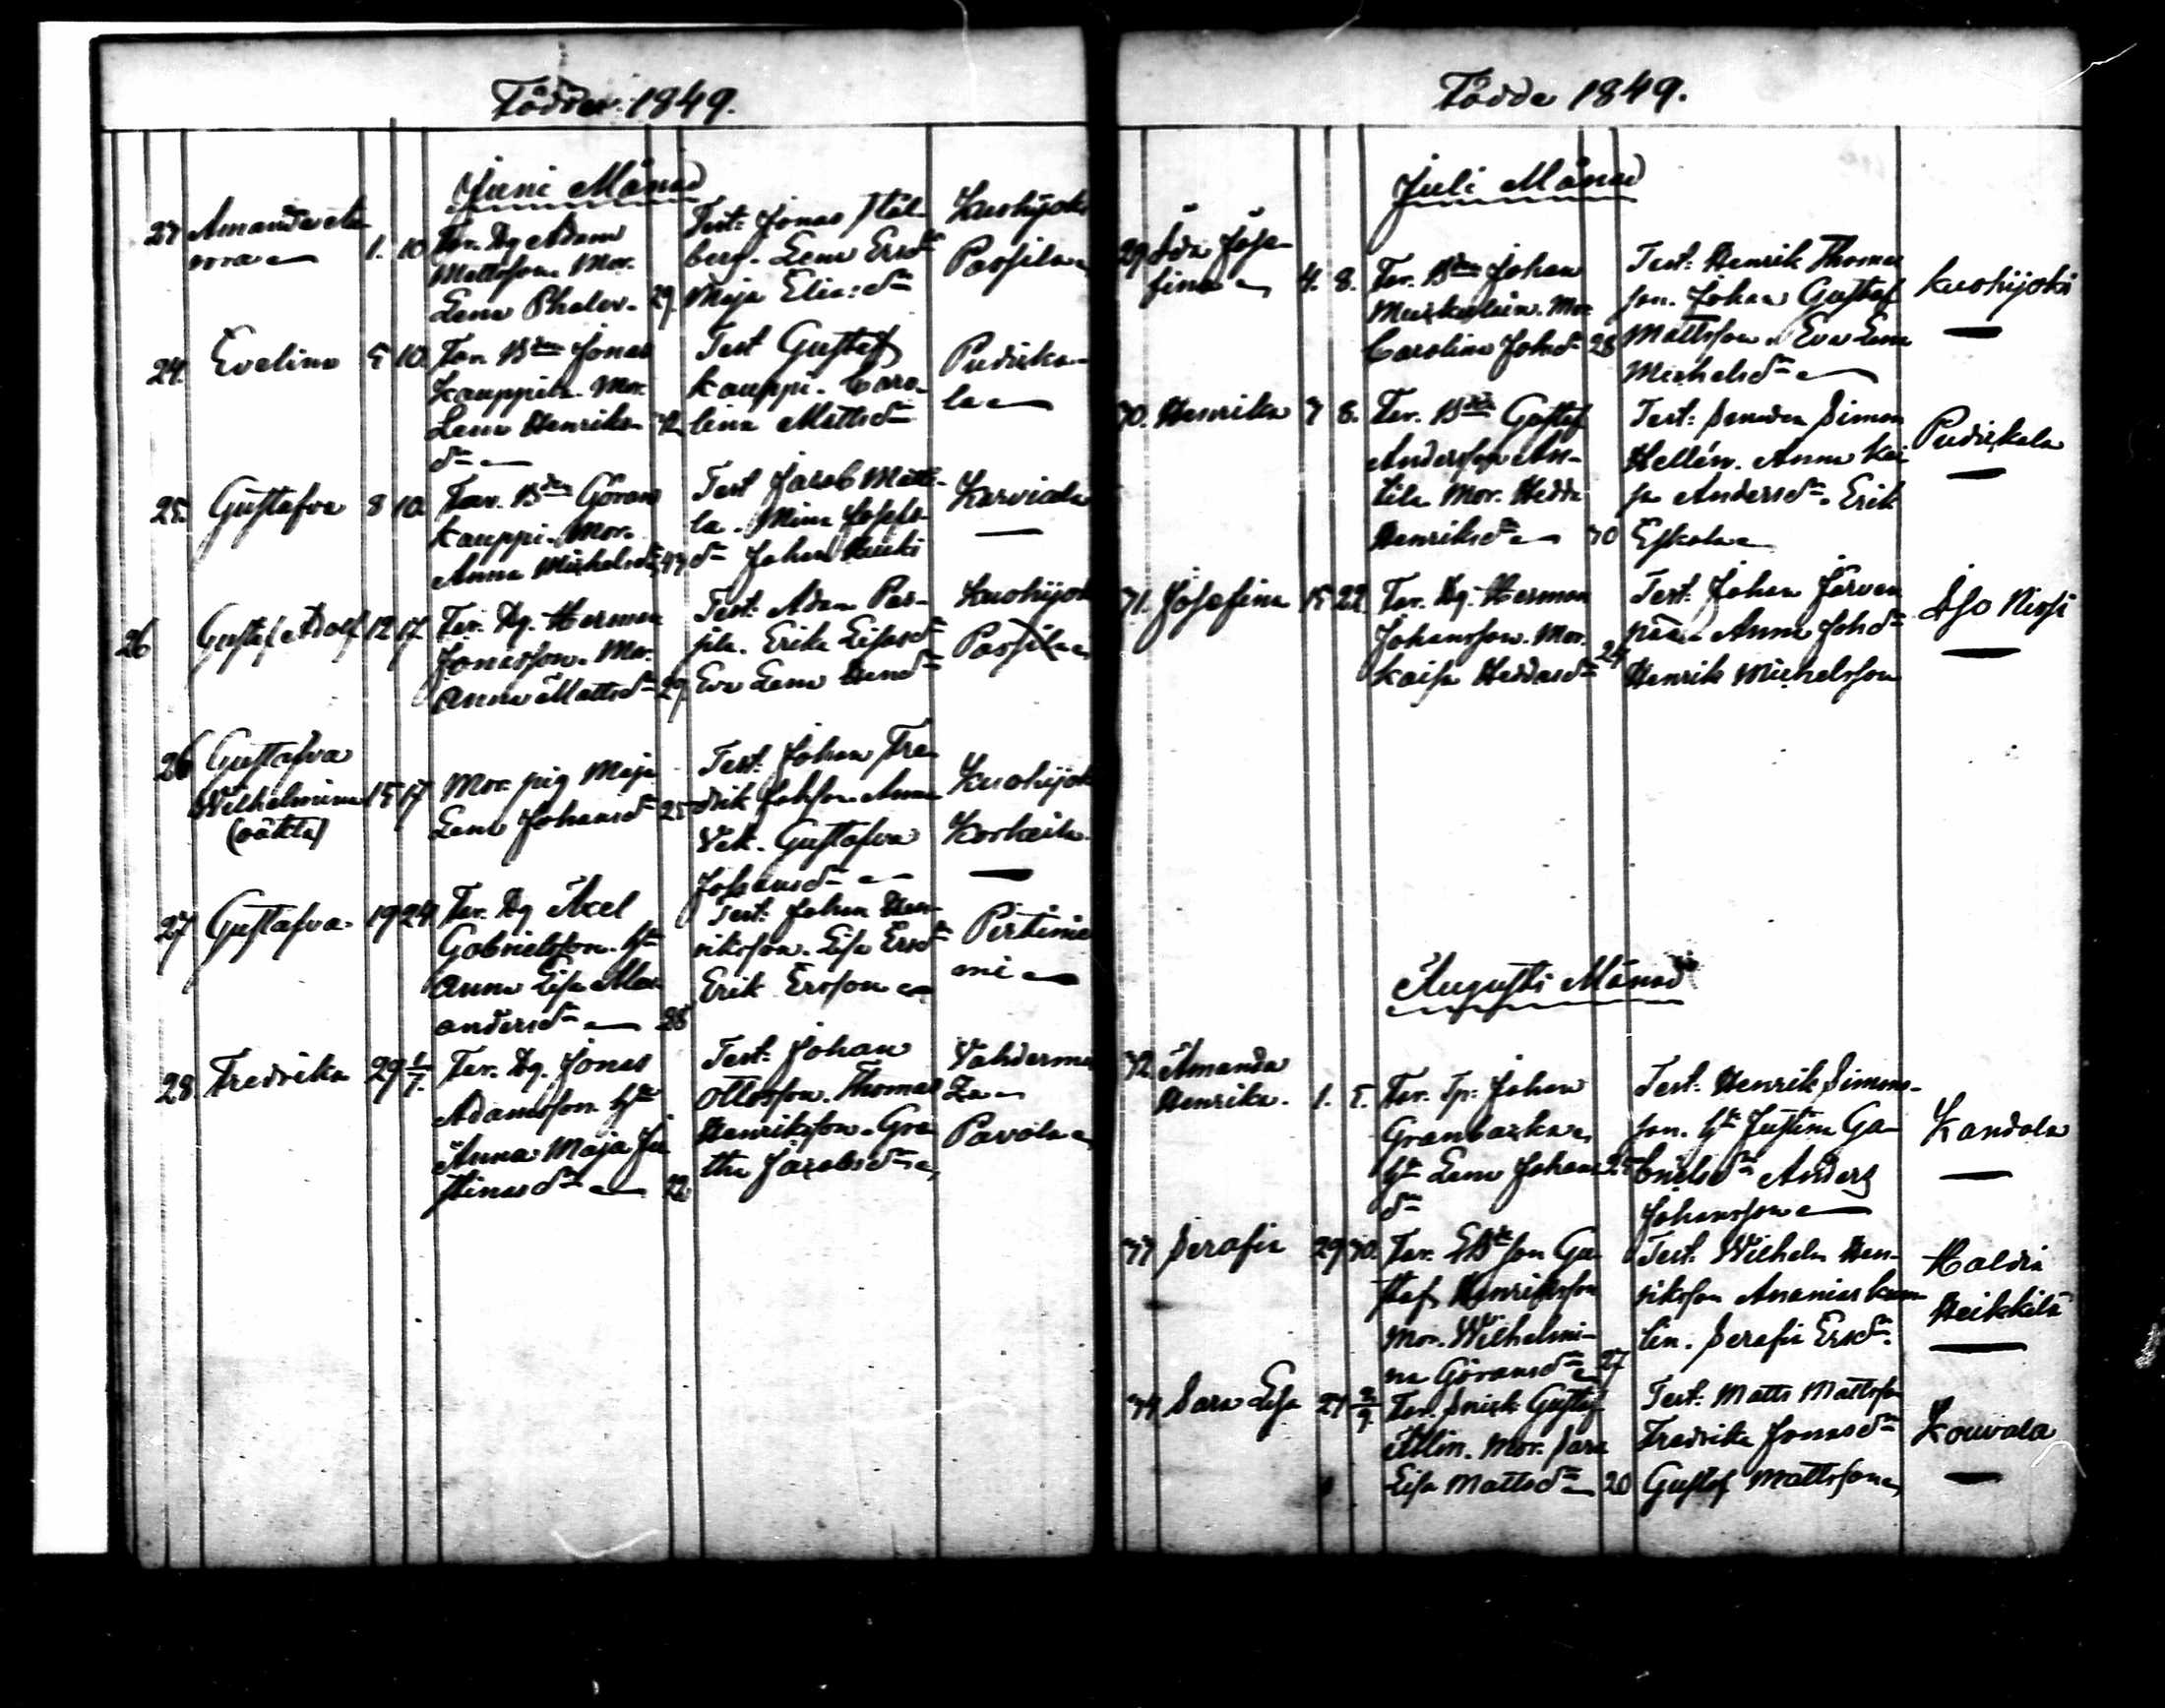 Födde 1849.
Juni Månad
27 Amanda Au-
rora 1. 10.
Far. Dg Adam
Mattsson. Mor.
Lena Phaler. 29.
Test: Jonas Stål-
berg. Lena Ersdr
Maja Elias:dr
Kuohijoki
Passila
24. Evelina 5 10.
Far. Bden Jonas
Kauppila. Mor.
Lena Henriks- 42
dr
Test Gustaf
Kauppi. Caro-
lina Mattsdr
Pudiska-
la
25. Gustafva 8 10.
Far. Bden Göran
Kauppi. Mor.
Anna Michelsdr 43
Test Jacob Matti-
la. Mina Josefs-
dr Johan
Karviala
26 Gustaf Adolf 12 17.
Far. Dg. Herman
Jonasson. Mor.
Anna Mattsdr 29.
Test: Adam Pas-
sila. Erika Lisasdr
Eva Lena Hendr
Kuohijoki
Passila
26 Gustafva
Wilhelmina 15 17
(oäkta)
Mor. pig Maja
Lena Johansdr 25
Test: Johan Fre-
drik Johsson. Anna
Vek. Gustafva
Johansdr
Kuohijoki
Korkeila
27 Gustafva 19 24.
Far. Dg Axel
Gabrielsson. Hu
Anna Lisa Alex-
andersdr 28
Test: Johan Hen-
riksson. Lisa Ersdr
Erik Ersson
Pirtinie-
mi
28 Fredrika 29 1/7.
Far. Dg. Jonas
Adamsson. Hu
Anna Maja Ju-
stinasdr 22.
Test: Johan
Ottosson. Thomas
Henriksson. Gre-
tha Jacobsdr
Pavola
Födde 1849.
Juli Månad
29 Ida Jose-
fina 4. 8.
Far. Bden Johan
Muskulain. Mor.
Carolina Johsdr 28
Test: Henrik Thomas-
son. Johan Gustaf
Mattsson. Eva Lena
Michelsdr
Kuohijoki
30. Henrika 7 8.
Far. Bden Gustaf
Andersson An-
tila. Mor. Hedda
Henriksdr 30
Test: Simon
Hellén. Anna Kai-
sa Andersdr. Erik
Eskola
Pudiskala
31. Josefina 15 22.
Far. Dg. Herman
Johansson. Mor.
Kaisa Heddasdr 24
Test. Johan Järven-
pää. Anna Johdr
Henrik Michelsson
Iso Nissi
Augusti Månad
32. Amanda
Henrika. 1. 5.
Far. Tp. Johan
Granbacka
Hu Lena Johans- 25
dr
Test: Henrik Simons-
son. Hu Justina Ga-
brielsdr Anders
Johansson
Kandola
33 Serafia 29 30.
Far. Son Gu-
staf Henriksson
Mor. Wilhelmi-
na Göransdr 27
Test. Wilhelm Hen-
riksson Ananias Kum-
lin. Serafia Ersdr.
Haldia
Heikkilä
34 Sara Lisa 27 2/9.
Far. Snick. Gustaf
Mor. Sara
Lisa Mattsdr 20
Test: Matts Mattsson
Fredrika Jonasdr
Gustaf Mattsson
Kouvala